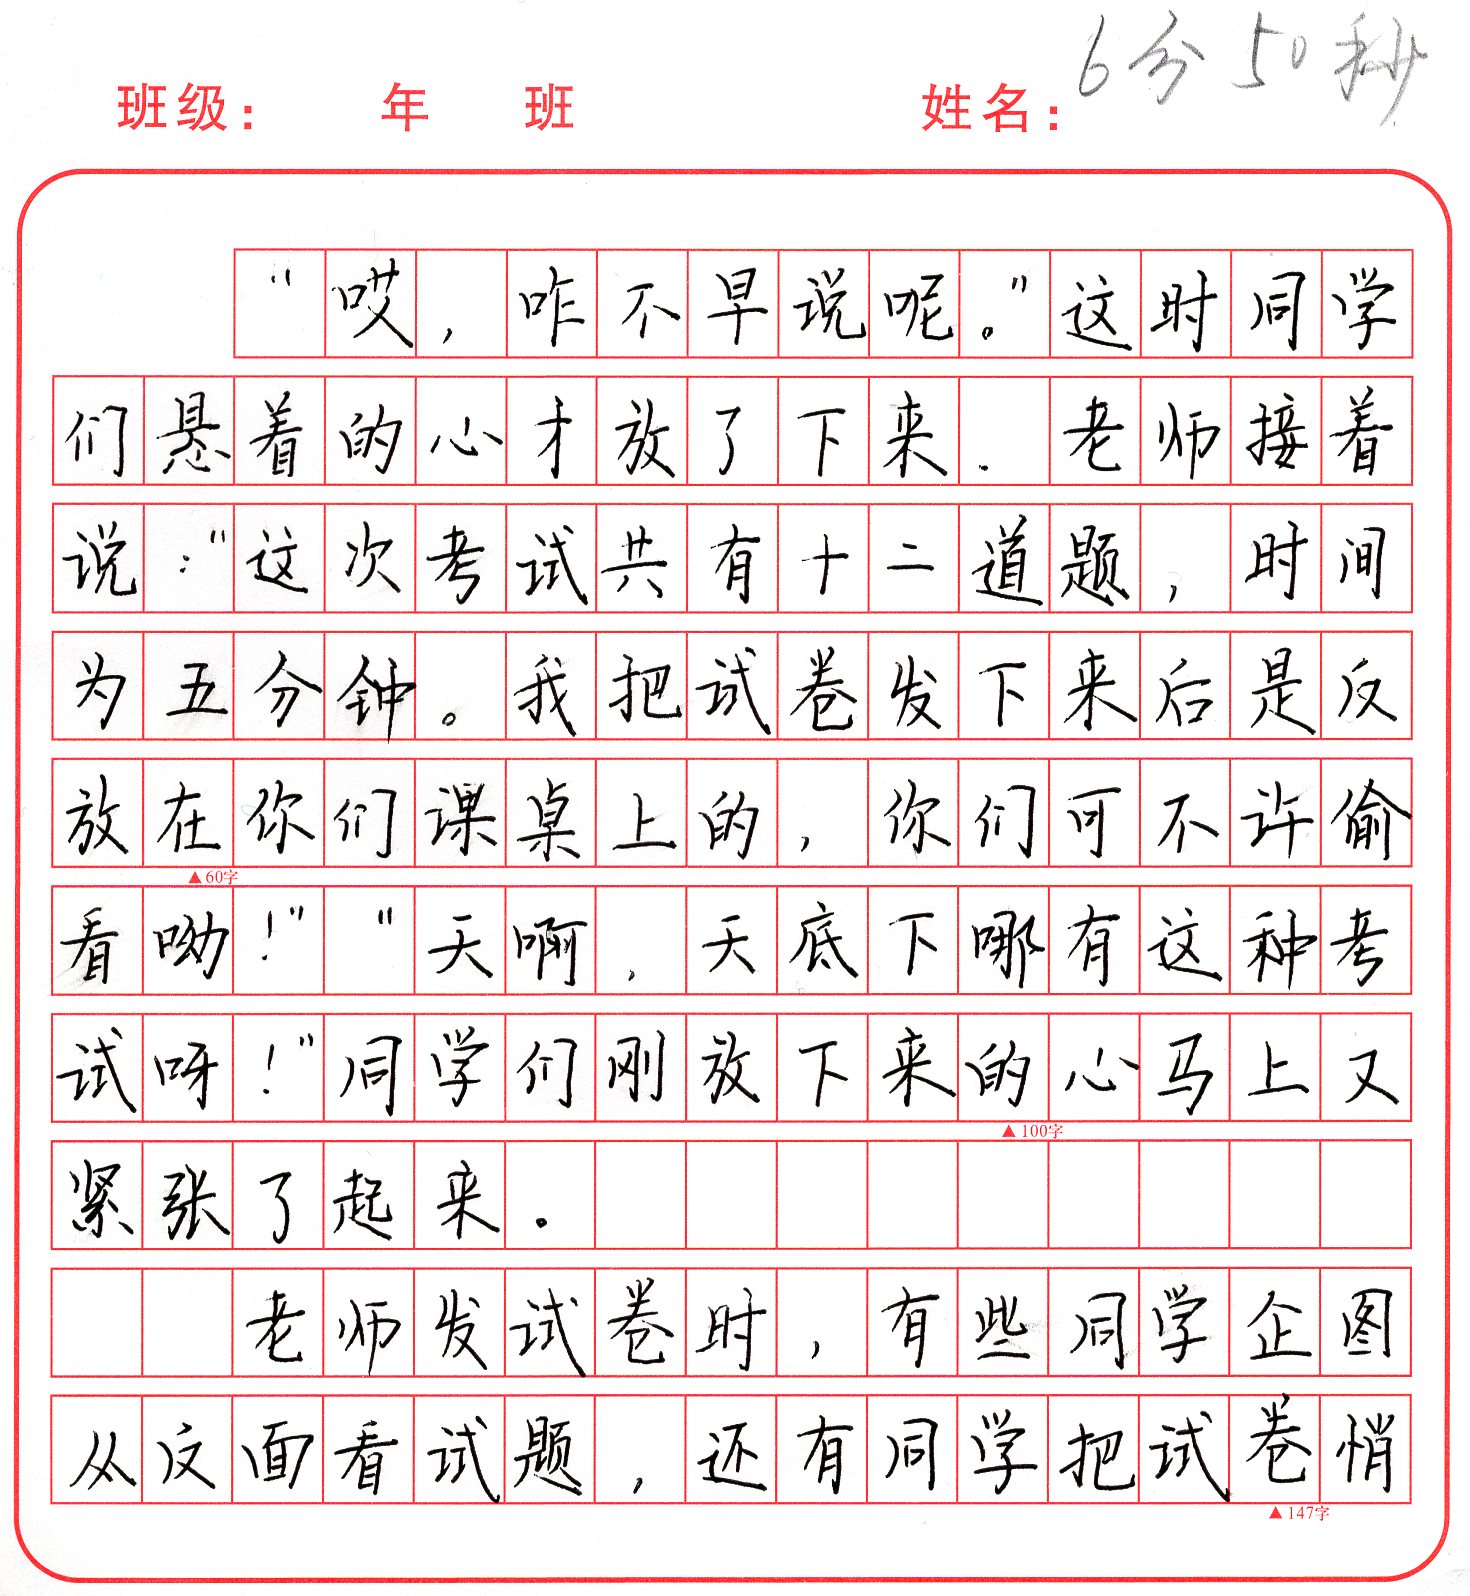 6分50秒
班级： 年 班 姓名：
“哎，咋不早说呢。”这时同学
们悬着的心才放了下来．老师接着
说：“这次考试共有十二道题，时间
为五分钟。我把试卷发下来后是反
放在你们课桌上的，你们可不许偷
▲60字
看呦！”“天啊，天底下哪有这种考
试呀！”同学们刚放下来的心马上又
▲100字
紧张了起来．
老师发试卷时，有些同学企图
从反面看试题，还有同学把试卷悄
▲147字